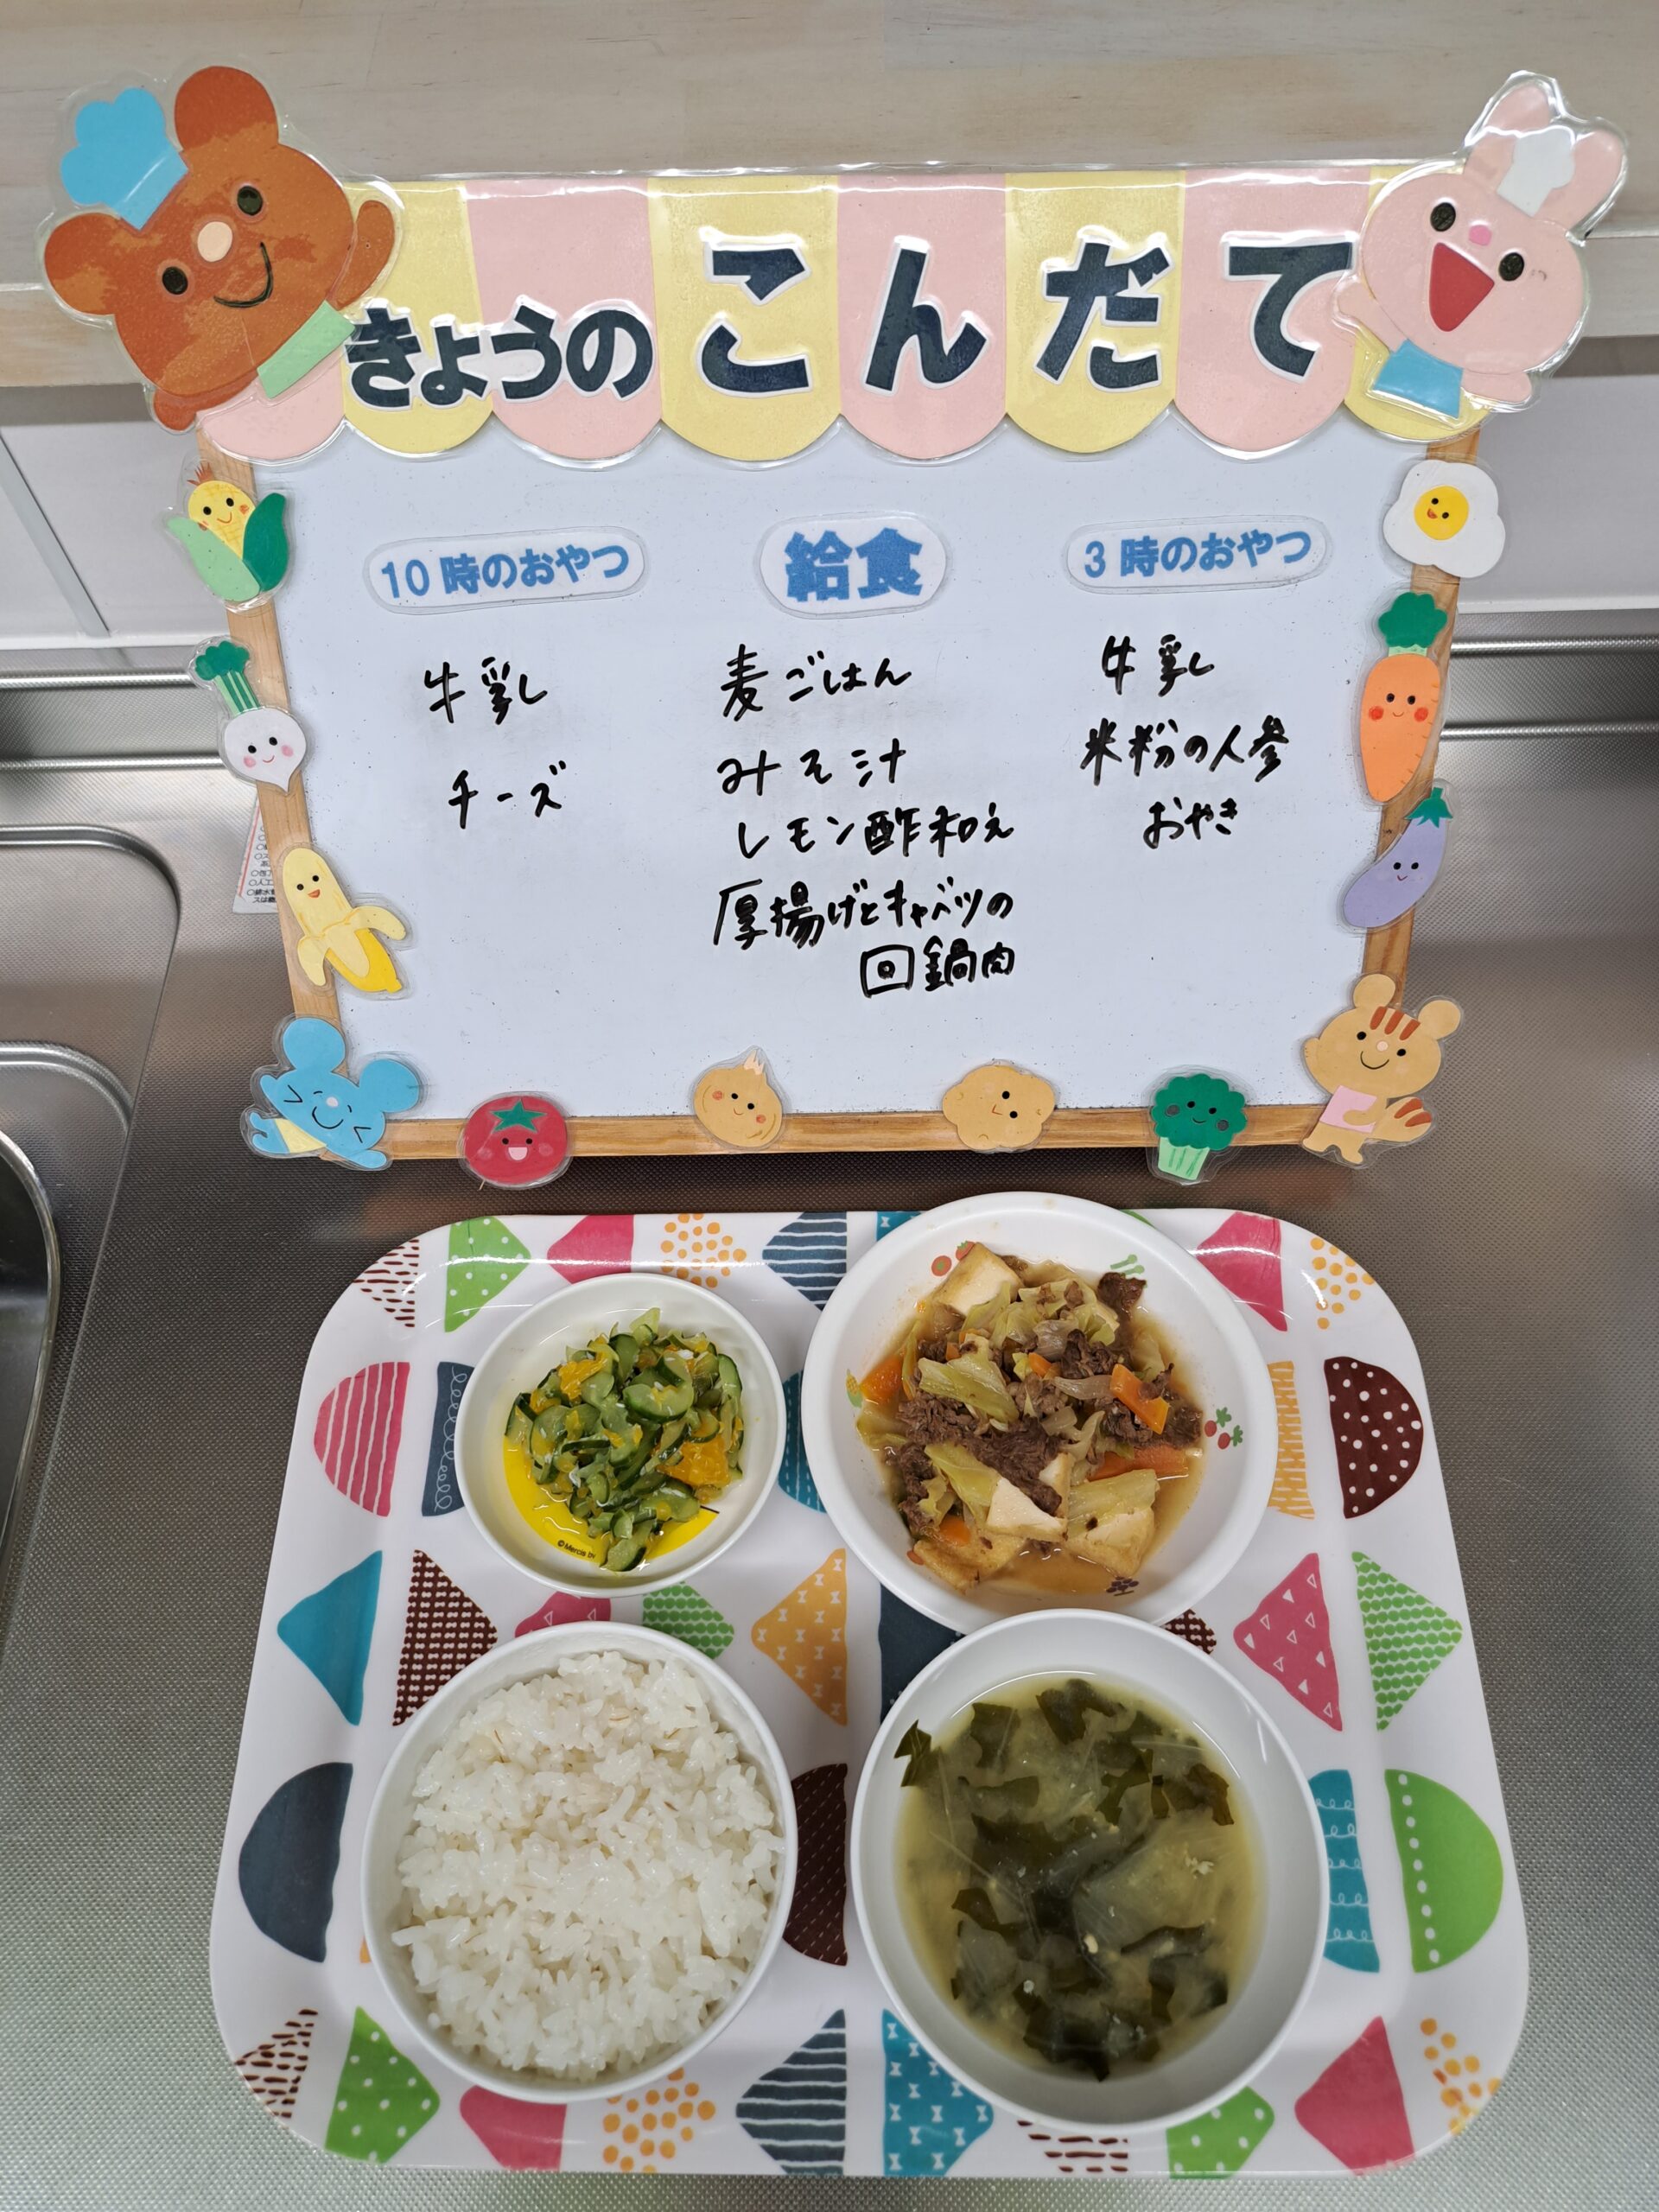 きょうの こんだて
10時のおやつ
牛乳
チーズ
給食
麦ごはん
みそ汁
レモン酢和え
厚揚げとキャベツの
回鍋肉
3時のおやつ
牛乳
米粉の人参
おやき
©Mercis bv